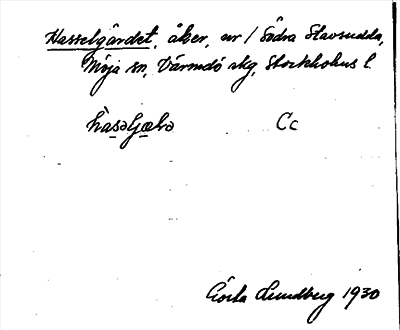 Hasselgärdet, åker, nr 1 Södra Stavsudda,
Möja sn, Värmdö skg, Stockholms l.
Cc
Gösta Lundberg 1930